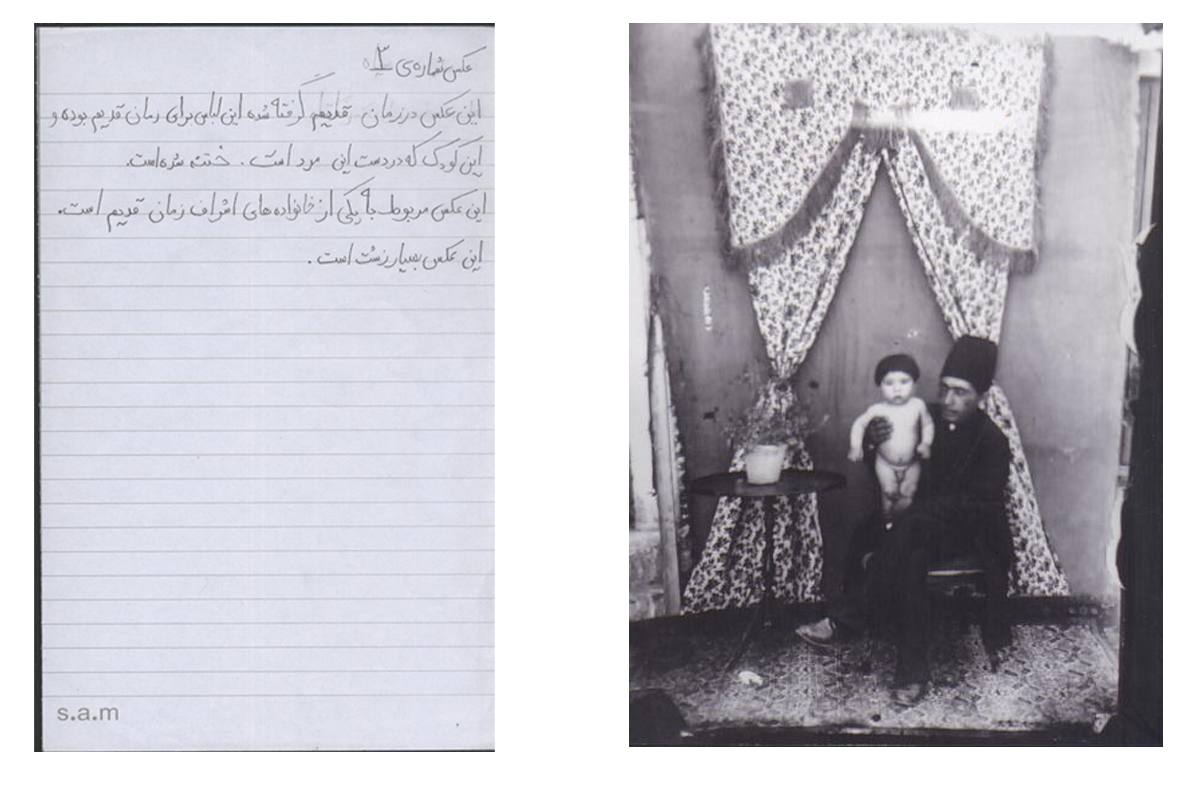 عکس شماره‌ی ۳
این عکس در زمان قدیم گرفته شده این لباس برای زمان قدیم بوده و
این کودک که در دست این مرد است . ختنه شده است.
این عکس مربوط به یکی از خانواده های اشراف زمان قدیم است.
این عکس بسیار زشت است .
s.a.m